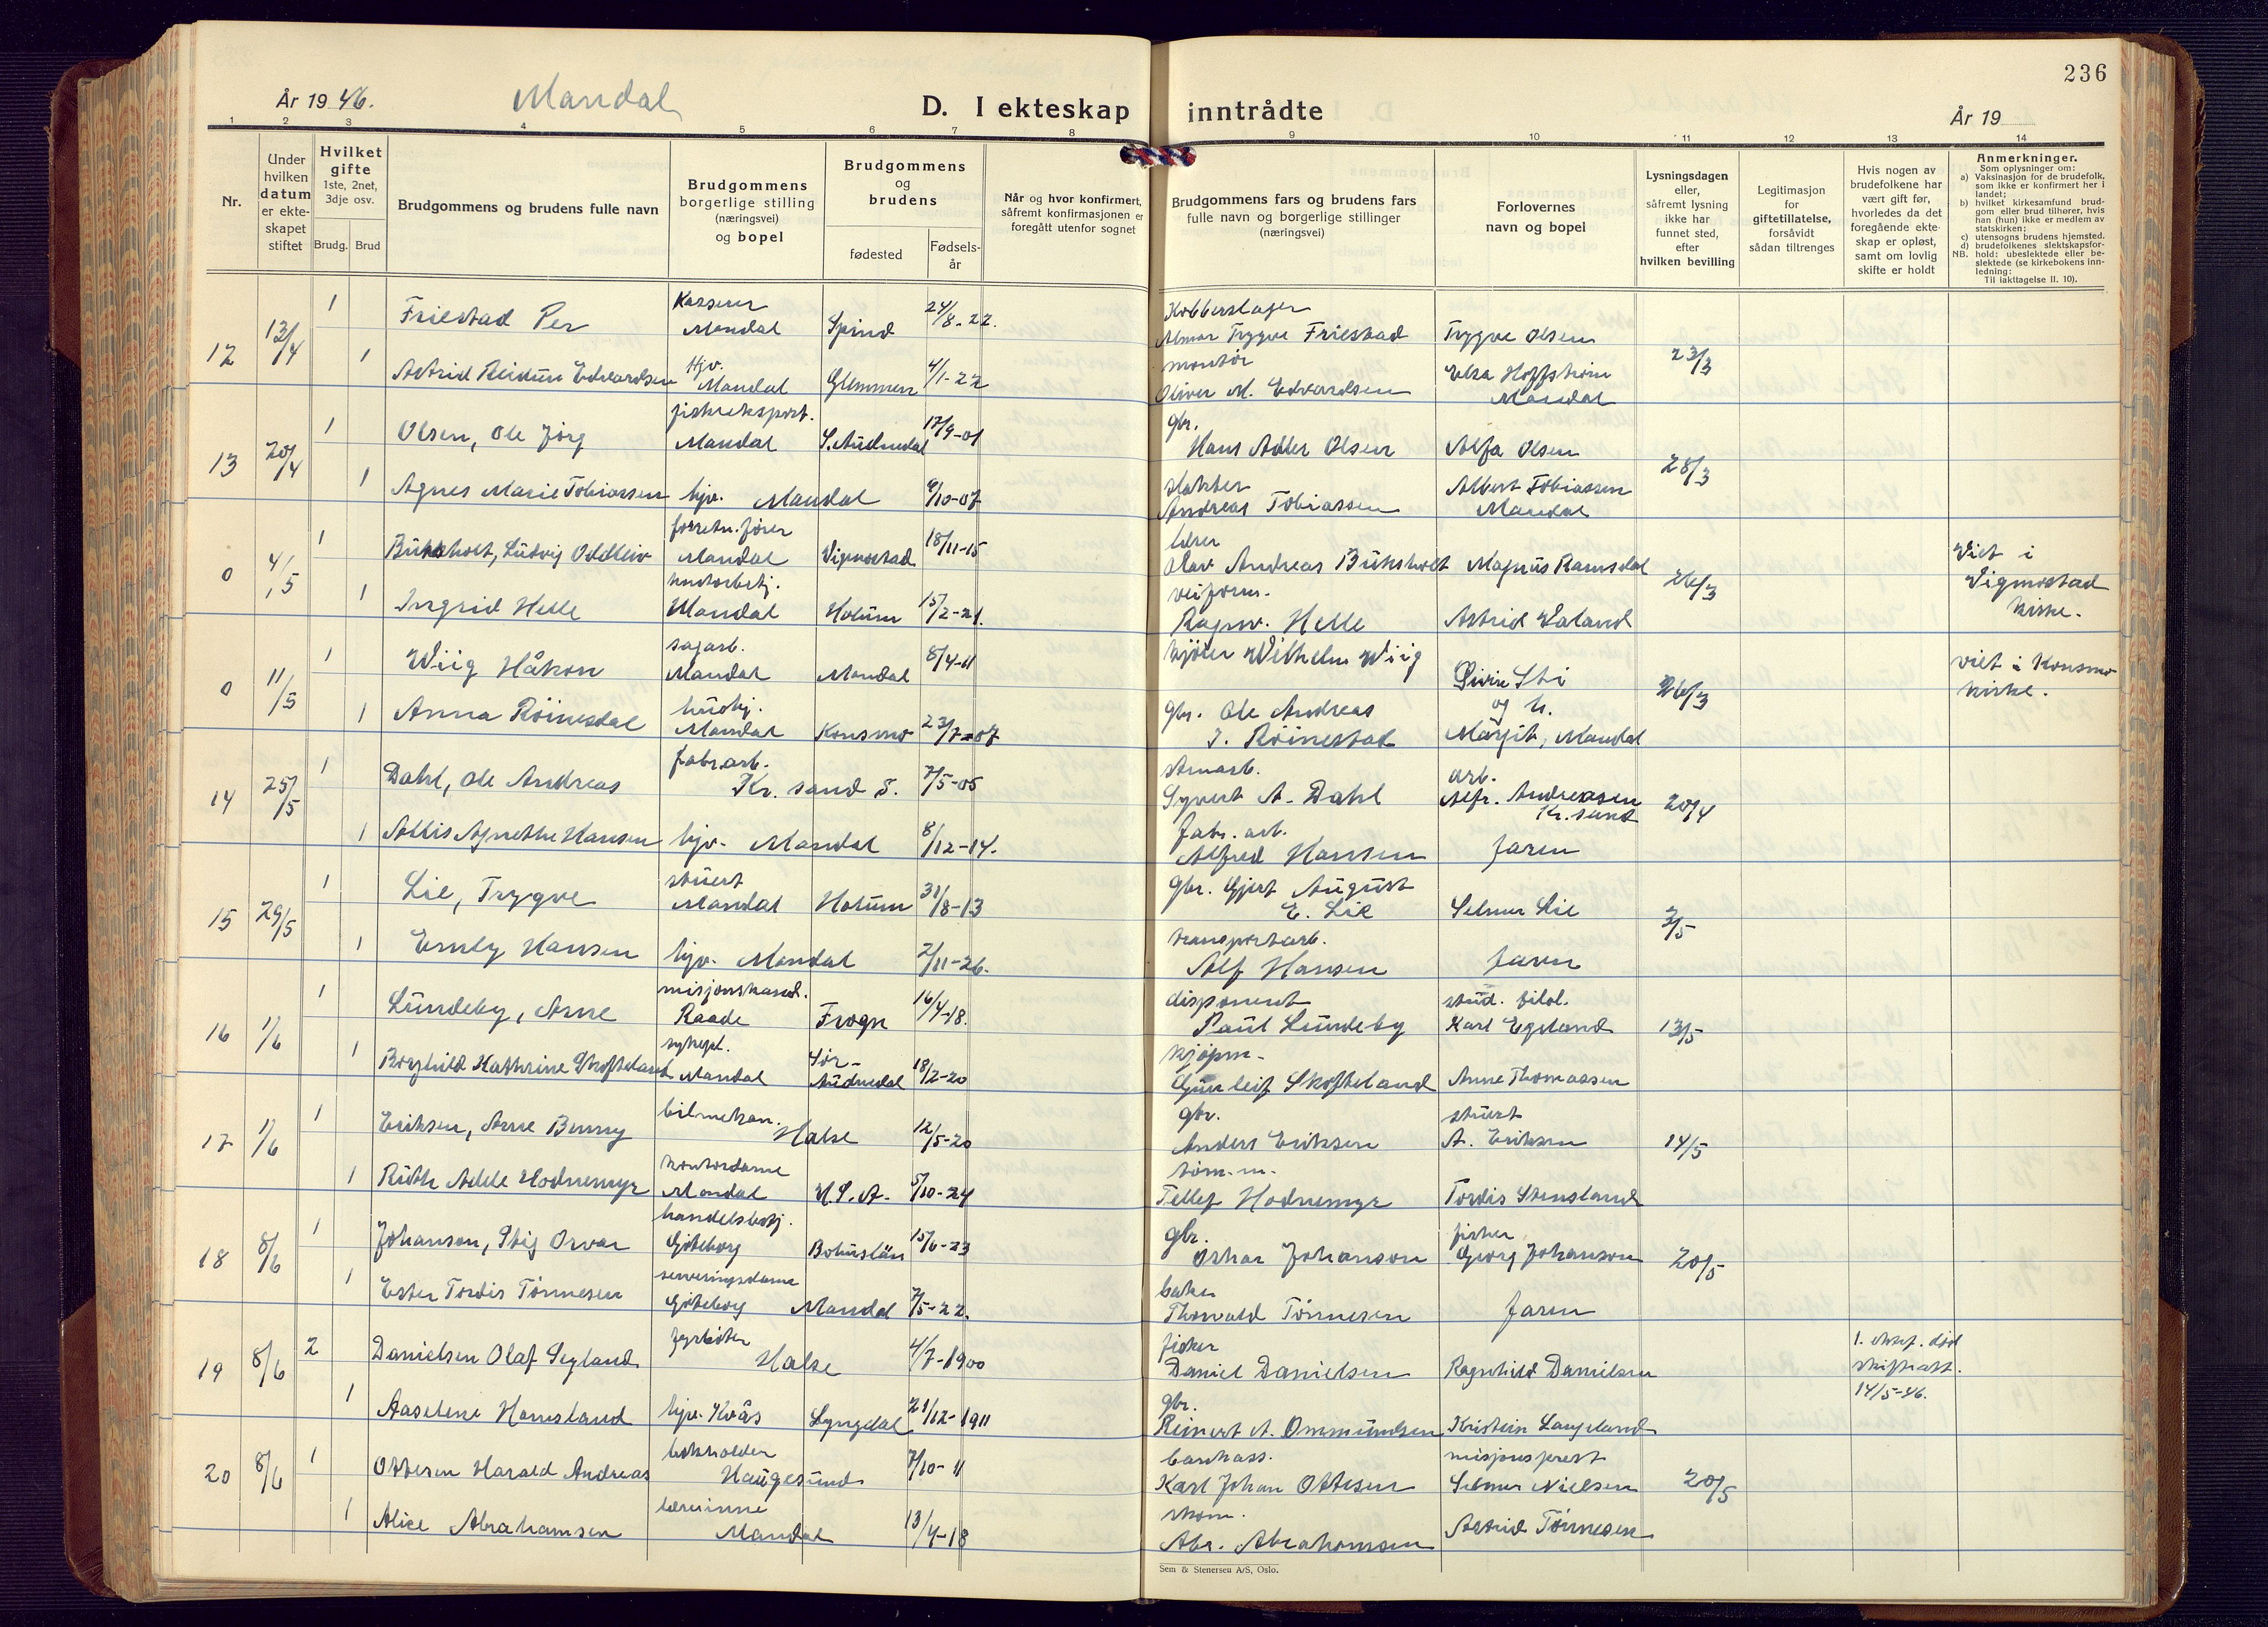 236
År 1946.
Mandal
D. I ekteskap inntrådte
År 19
1 2 3 4 5 6 7 8 9 10 11 12 13 14
Nr.
Under hvilken datum er ekteskapet stiftet
Hvilket gifte
1ste, 2net, 3dje osv.
Brudg. Brud
Brudgommens og brudens fulle navn
Brudgommens borgerlige stilling (næringsvei) og bopel
Brudgommens og brudens
fødested
Fødselsår
Når og hvor konfirmert, såfremt konfirmasjonen er foregått utenfor sognet
Brudgommens fars og brudens fars fulle navn og borgerlige stillinger (næringsvei)
Forlovernes navn og bopel
Lysningsdagen eller, såfremt lysning ikke har funnet sted, efter hvilken bevilling
Legitimasjon for giftetillatelse, forsåvidt sådan tiltrenges
Hvis nogen av brudefolkene har vært gift før, hvorledes da det foregående ekteskap er opløst, samt om lovlig skifte er holdt
Anmerkninger.
Som oplysninger om:
a) Vaksinasjon for de brudefolk, som ikke er konfirmert her i landet;
b) hvilket kirkesamfund brudgom eller brud tilhører, hvis han (hun) ikke er medlem av statskirken;
c) utensogns brudens hjemsted.
d) brudefolkenes slektskapsforhold: ubeslektede eller beslektede (se kirkebokens innledning:
NB. Til iakttagelse II. 10).
12 13/4 1 Friestad Per Kasserer Mandal Spind 24/8-22. Kobberslager Almar Trygve Friestad Trygve Olsen 23/3
1 Astrid Reidun Edvardsen Hjv. Mandal Glemmen 4/1-22 montør Oliver M. Edvardsen Elsa Hoffstrøm Mandal
13 20/4 1 Olsen, Ole Jørg fiskeeksport. Mandal S. Audnedal 17/9-01 gbr. Hans Adler Olsen Alfa Olsen 28/3
1 Agnes Marie Tobiassen hjv. Mandal 9/10-07 slakter Andreas Tobiassen Albert Tobiassen Mandal
0 4/5 1 Buksholt, Ludvig Oddleiv forretn.fører Mandal Vigmostad 18/11-15 lærer Olav Andreas Buksholt Magnus Ramsdal 26/3 Viet i Vigmostad kirke.
1 Ingrid Helle Mandal Holum 15/2-21. veiform. Ragnv. Helle Astrid Valand
0 11/5 1 Wiig Håkon sagarb. Mandal Mandal 8/4-11 kjører Vilhelm Wiig 26/3 viet i Konsmo kirke.
1 Anna Röinesdal hushj. Mandal Konsmo 23/7-07 gbr. Ole Andreas J. Röinestad og h. Margit, Mandal
14 25/5 1 Dahl, Ole Andreas fabr.arb. Kr. sand S. 7/5-05 stuarb. Syvert A. Dahl arb. Alfr. Andreasen Kr.sand 20/4
1 Allis Agnethe Hansen hjv. Mandal 8/12-14. fabr. arb. Alfred Hansen faren
15 29/5 1 Lie, Trygve stuert Mandal Holum 31/8-13 gbr. Gjert August E. Lie Selmer Lie 7/5
1 Emly Hansen hjv. Mandal 2/11-26. transportarb. Alf Hansen faren
16 1/6 1 Lundeby, Arne misjonskand. Raade Frogn 16/4-18. disponent Paul Lundeby stud. filol. Karl Egeland 13/5
1 Borghild Kathrine Skofteland sykepl. Mandal Sør-Audnedal 18/2-20 kjøpm. Gunleif Skofteland Anne Thomassen
17 1/6 1 Eriksen, Arne Benny bilmekan. Halse 12/5-20 gbr. Anders Eriksen stuert A. Eriksen 14/5
1 Ruth Adele Hodnemyr kontordame Mandal U.S.A. 5/10-24 tøm.m. Tellef Hodnemyr Tordis Stensland
18 8/6 1 Johanson, Stig Orvar handelsbetj. Göteborg Bohuslän 15/6-23 gbr. Oskar Johanson fisker Georg Johanson 20/5
1 Ester Tordis Tönnesen serveringsdame Göteborg Mandal 7/5-22. baker Thorvald Tönnesen faren
19 8/6 2 Danielsen Olaf Segland fyrbøter Halse 4/7-1900 fisker Daniel Danielsen Ragnhild Danielsen 1. ektef. död skifteatt. 14/5-46.
1 Aaselene Homsland hjv. Kvås Lyngdal 21/12-1911 gbr. Reinert A. Ommundsen Kristein Laugeland
20 8/6 1 Ottesen Harald Andreas bokholder Haugesund 7/10-11 bankkass. Karl Johan Ottesen misjonsprest Selmer Nielsen 20/5
1 Alice Abrahamsen lærerinne Mandal 13/4-18 skom. Abr. Abrahamsen Astrid Tönnesen
Sem & Stenersen A/S, Oslo.